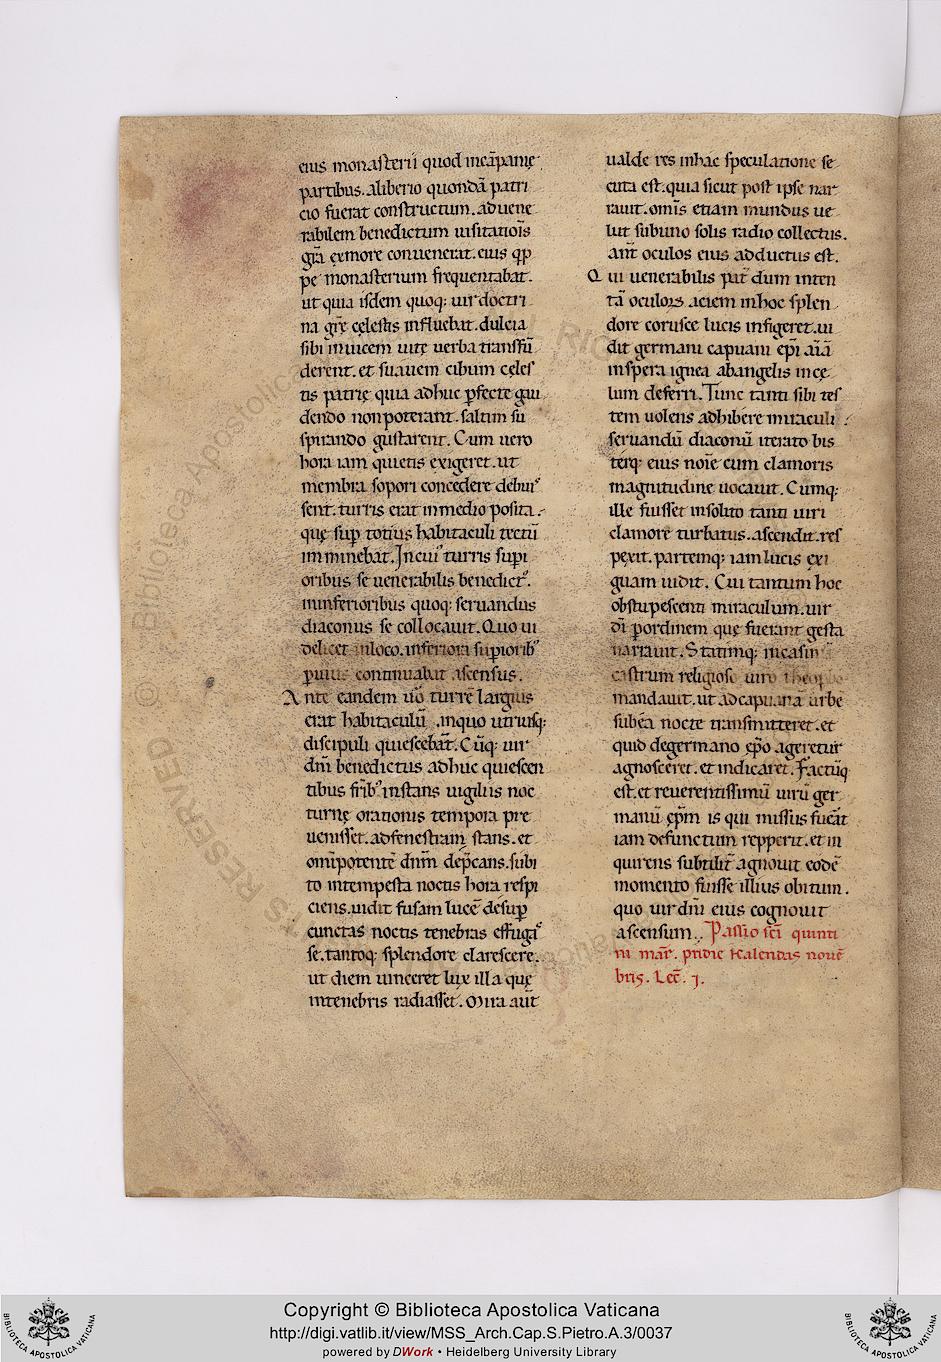 eius monasterii quod incāpanię
partibus. aliberio quondā patri
cio fuerat constructum. aduene
rabilem benedictum uisitatiōis
grā exmore conuenerat. eius qp̄
pe monasterium frequentabat.
ut quia isdem quoq; uir doctri
na grē cęlestis influebat. dulcia
sibi inuicem uitę uerba transfū
derent. et suauem cibum cęles
tis patrię quia adhuc ꝑfecte gau
dendo nonpoterant. saltim su
spirando gustarent. Cum uero
hora iam quietis exigeret. ut
membra sopori concedere debuis
sent. turris erat inmedio posita.
quę sup̄ totius habitaculi tectū
imminebat. Incui' turris supi
oribus se uenerabilis benedict'.
ininferioribus quoq; seruandus
diaconus se collocauit. Quo ui
delicet inloco. inferiora supioriƀ'
ꝑuius continuabat ascensus.
Ante eandem uō turrē largius
erat habitaculū .inquo utriusq;
discipuli quiescebāt. Cūq; uir
dnī benedictus adhuc quiescen
tibus friƀ' instans uigiliis noc
turnę orationis tempora pre
uenisset. adfenestram stans. et
omīpotentē dnm̄ dep̄cans. subi
to intempesta noctis hora respi
ciens. uidit fusam lucē desup̄
cunctas noctis tenebras effuga'
se. tantoq; splendore clarescere.
ut diem uinceret lux illa quę
intenebris radiasset. Mira aūt
ualde res inhac speculatione se
cuta est. quia sicut post ipse nar
rauit. omīs etiam mundus ue
lut subuno solis radio collectus.
ant̄ oculos eius adductus est.
Qui uenerabilis pat̄ dum inten
tā oculoꝝ aciem inhoc splen
dore corusce lucis infigeret. ui
dit germani capuani ep̄i aīā
inspera ignea abangelis incę
lum deferri. Tunc tanti sibi tes
tem uolens adhibere miraculi.
seruandū diaconū iterato bis
terq; eius noīe cum clamoris
magnitudine uocauit. Cumq;
ille fuisset insolito tanti uiri
clamore turbatus. ascendit. res
pexit. partemq; iam lucis exi
guam uidit. Cui tantum hoc
obstupescenti miraculum. uir
dī ꝑordinem quę fuerant gesta
narrauit. Statimq; incasin
castrum religioso uiro theopbo
mandauit. ut adcapuanā urbē
subea nocte transmitteret. et
quid degermano ep̄o ageretur
agnosceret. et indicaret. Factūq
est. et reuerentissimū uirū ger
manū ep̄m is qui missus fuerāt
iam defunctum repperit. et in
quirens subtilit̄ agnouit eodē
momento fuisse illius obitum.
quo uir dnī eius cognouit
ascensum. Passio scī quinti
ni mar̄. pridie kalendas nouē
bris. Lec̄. j.
© Biblioteca Apostolica Vaticana ALL RIGHTS RESERVED
Copyright © Biblioteca Apostolica Vaticana
http://digi.vatlib.it/view/MSS_Arch.Cap.S.Pietro.A.3/0037
powered by DWork • Heidelberg University Library
BIBLIOTECA APOSTOLICA VATICANA
BIBLIOTECA APOSTOLICA VATICANA